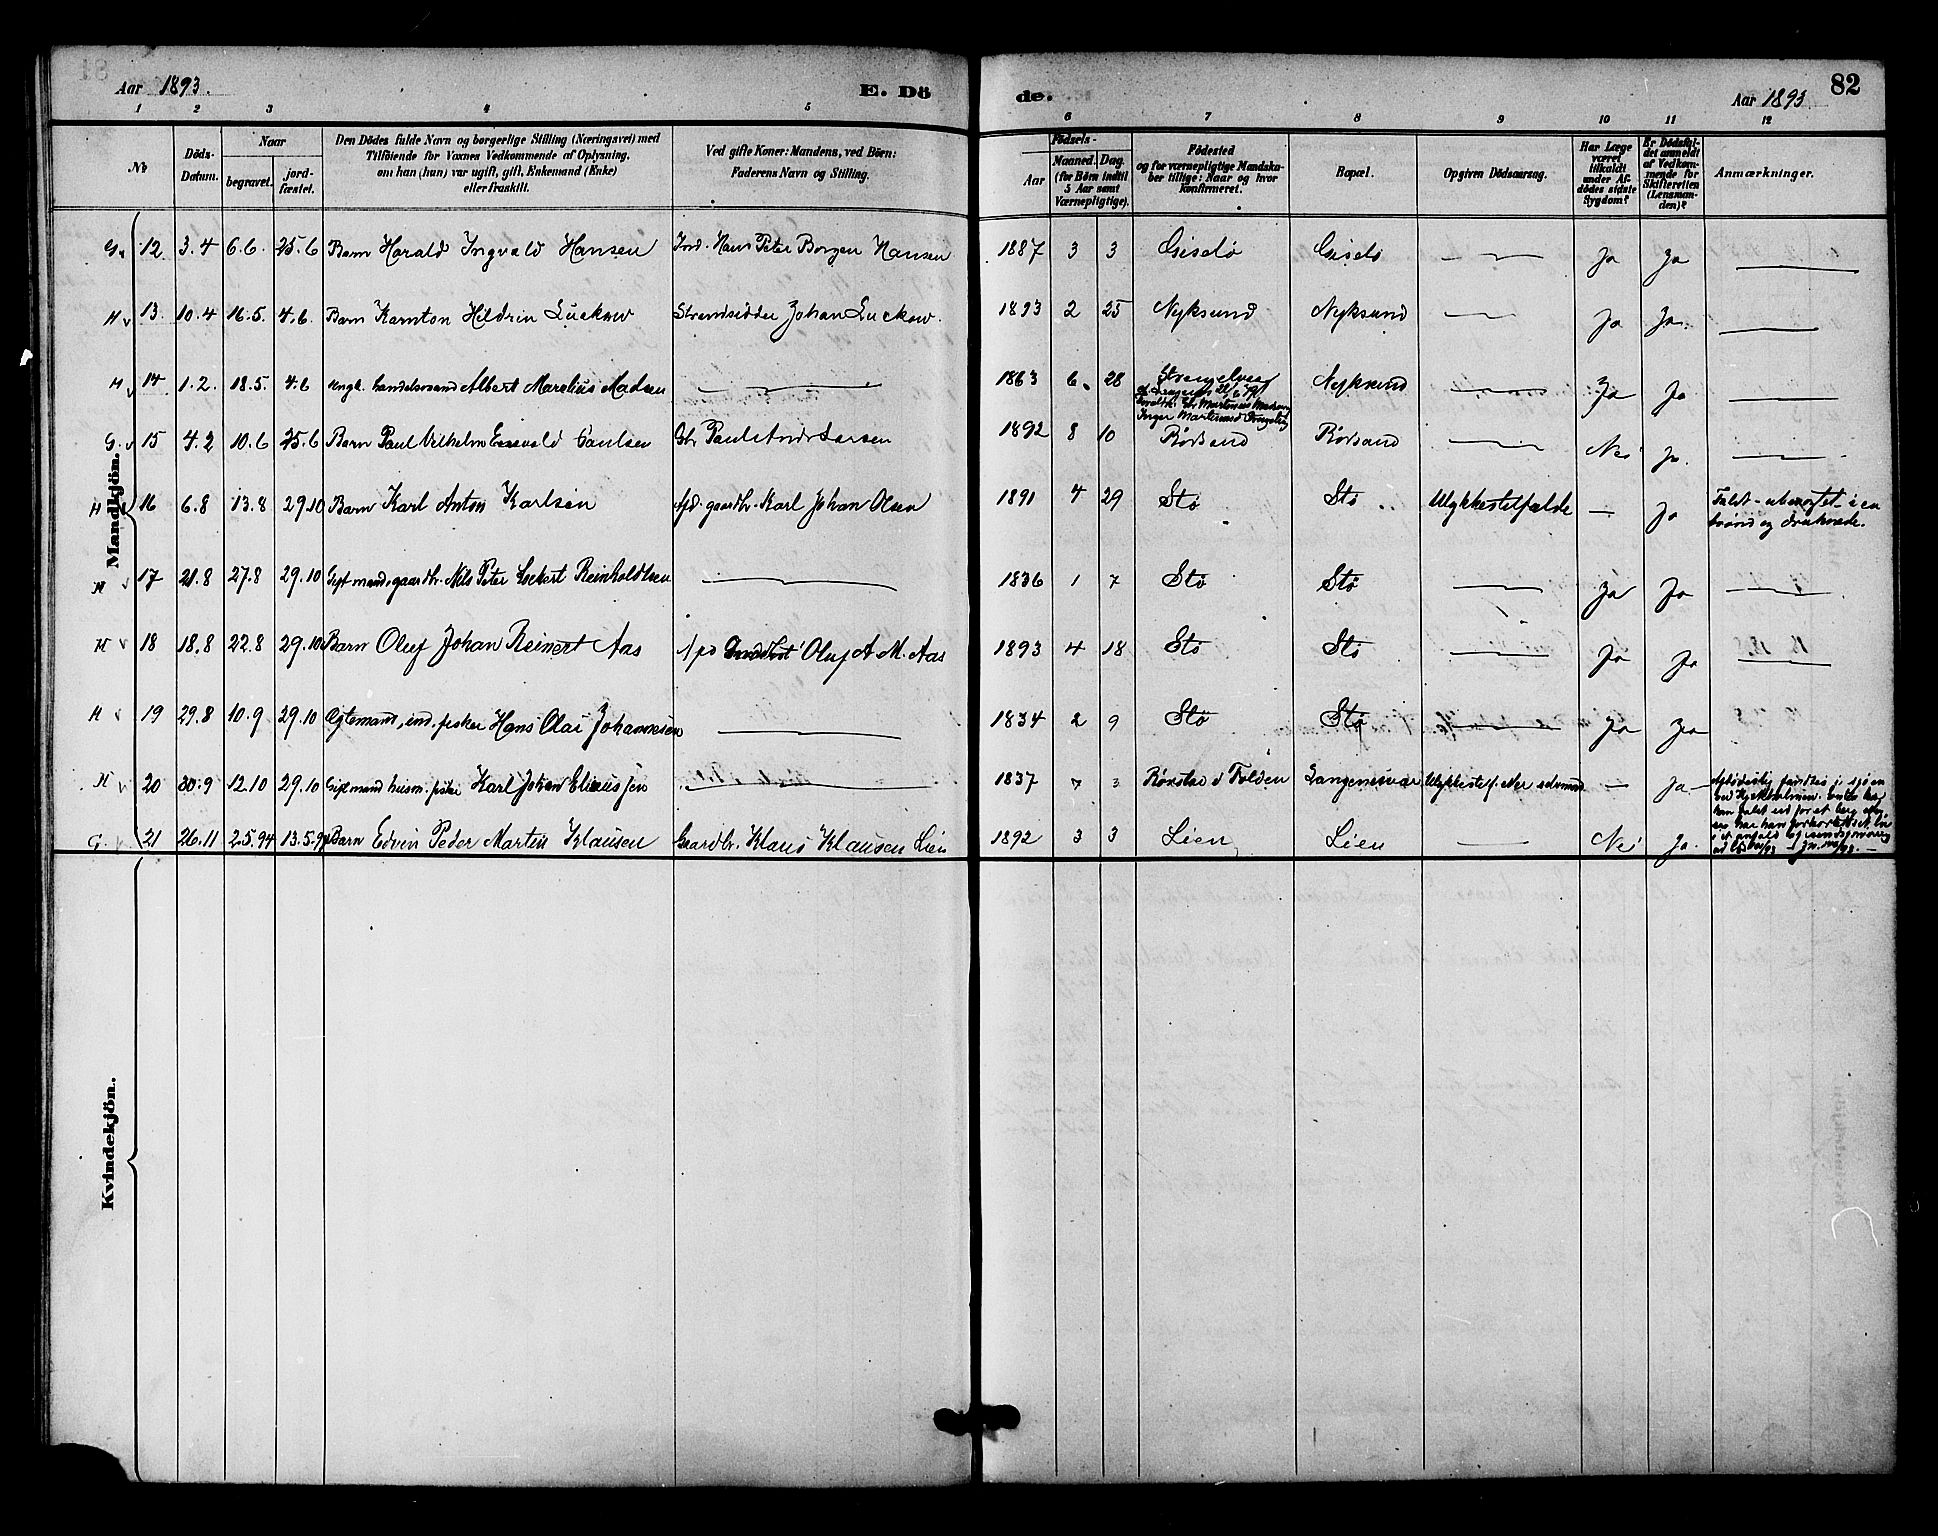 Aar 1893.
E. Dö
de.
82
Aar 1893.
1 2 3 4 5 6 7 8 9 10 11 12
No
Döds-
Datum.
Naar
begravet.
jord-
fæstet.
Den Dödes fulde Navn og borgerlige Stilling (Næringsvei) med
Tilföiende for Voxnes Vedkommende af Oplysning,
om han (hun) var ugift, gift, Enkemand (Enke)
eller fraskilt.
Ved gifte Koner: Mandens, ved Börn:
Faderens Navn og Stilling.
Födsels-
Aar
Maaned. Dag.
(for Börn indtil
5 Aar samt
Værnepligtige).
Födested
og for værnepligtige Mandska-
ber tillige: Naar og hvor
konfirmeret.
Bopæl.
Opgiven Dödsaarsag.
Har Læge
været
tilkaldt
under Af-
dödes sidste
Sygdom?
Er Dödsfal-
det anmeldt
af Vedkom-
mende for
Skifteretten
(Lensman-
den)?
Anmærkninger.
Mandkjön.
G. 12 3.4 6.6. 25.6 Barn Harald Ingvald Hansen Ind. Hans Peter Borgen Hansen 1887 3 3 Gislö Gislö Ja Ja
H 13. 10.4 16.5. 4.6. Barn Karnton Hildrin Luckow Strandsidder Johan Luckow. 1893 2 25 Nyksund Nyksund Ja Ja.
H 14 1.2. 18.5. 4.6 Ungk. handelsmand Albert Marelius Madsen 1863 6. 28 Strengelvaag Nyksund Ja Ja
G. 15 4.2 10.6 25.6 Barn Paul Vilhelm Paulsen Gbr Paul Andr. Larsen 1892 8 10 Rödsand Rödsand Nei Ja.
H 16 6.8 13.8 29.10 Barn Karl Anton Karlsen gaardbr. Karl Johan Olsen 1891 4 29 Stö Stö Ulykkestilfælde — Ja Faldt - ubemerket - i en
brönd og druknede.
H 17 21.8 27.8 29.10 Gift mand, gaardbr. Nils Peter Lockert Reinholdtsen 1836 1 7 Stö Stö Ja Ja
H 18 18.8 22.8 29.10 Barn Oluf Johan Reinert Aas Oluf A. M. Aas 1893 4 18 Stö Stö Ja Ja
H 19 29.8 10.9 29.10 Ægtemand, ind. fisker Hans Olai Johannesen 1834 2 9 Stö Stö Ja Ja
H 20 30.9 12.10 29.10 Gift mand husm. fisker Karl Johan Eliassen 1837 7 3 Rönstad i Folden Langenesvær Ulykkestilf. eller selvmord — Ja
G. 21 26.11 2.5.94 13.5.94 Barn Edvin Peder Martin Klausen Gaardbr. Klaus Klausen Lien 1892 3 3 Lien Lien Nei Ja.
Kvindekjön.